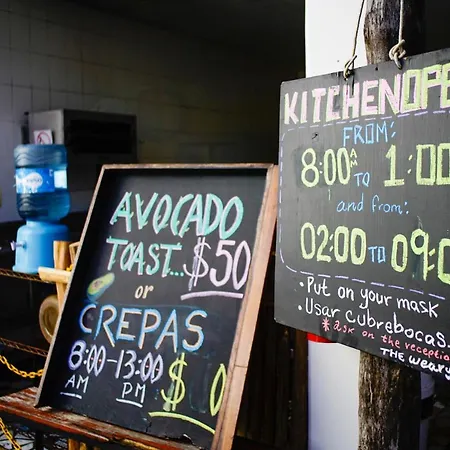 AVOCADO
TOAST... $50
or
CREPAS
8:00-13:00
AM PM
$ 0
KITCHEN OPE
FROM:
8:00 AM TO 1:00
and from:
02:00 TO 09:0
• Put on your mask
• Usar cubrebocas.
* ask on the reception
THE WEARY